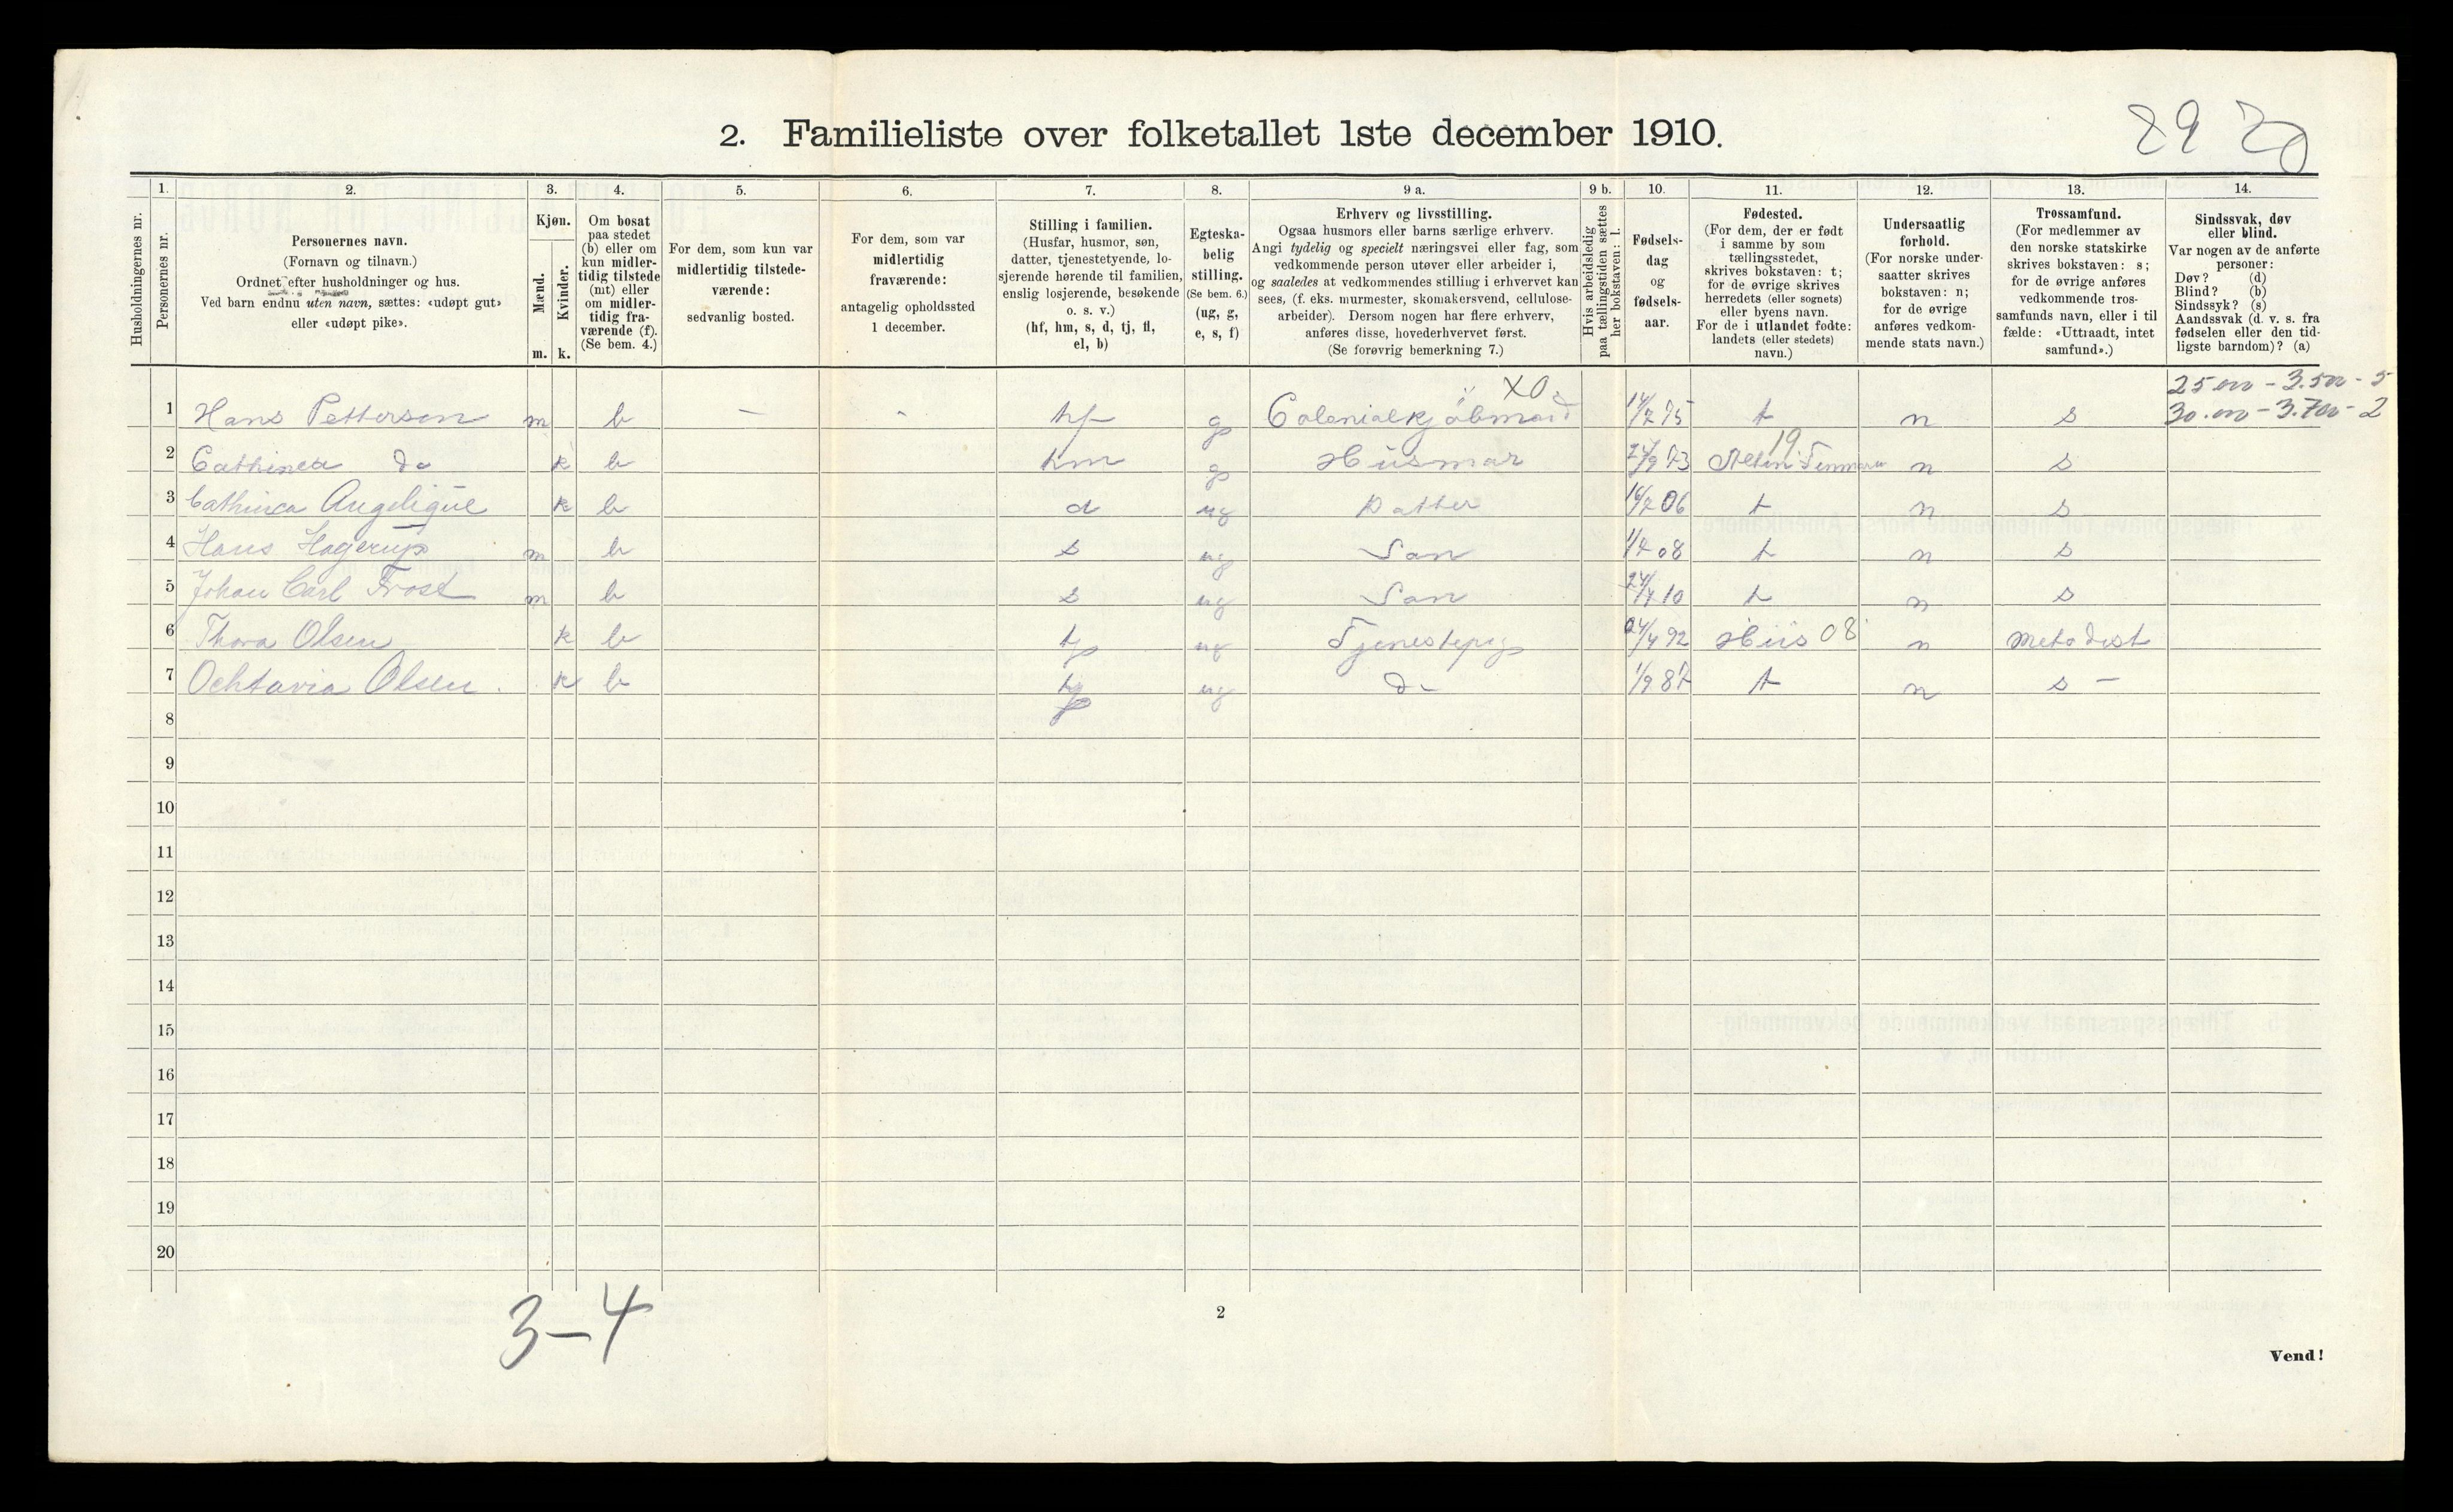 2. Familieliste over folketallet 1ste december 1910.
29 20
Husholdningernes nr.
1.
Personernes nr.
2.
Personernes navn.
(Fornavn og tilnavn.)
Ordnet efter husholdninger og hus.
Ved barn endnu uten navn, sættes: «udøpt gut»
eller «udøpt pike».
3.
Kjøn.
Mænd.
Kvinder.
m. k.
4.
Om bosat
paa stedet
(b) eller om
kun midler-
tidig tilstede
(mt) eller
om midler-
tidig fra-
værende (f).
(Se bem. 4.)
5.
For dem, som kun var
midlertidig tilstede-
værende:
sedvanlig bosted.
6.
For dem, som var
midlertidig
fraværende:
antagelig opholdssted
1 december.
7.
Stilling i familien.
(Husfar, husmor, søn,
datter, tjenestetyende, lo-
sjerende hørende til familien,
enslig losjerende, besøkende
o. s. v.)
(hf, hm, s, d, tj, fl,
el, b)
8.
Egteska-
belig
stilling.
(Se bem. 6.)
(ug, g,
e, s, f)
9 a.
Erhverv og livsstilling.
Ogsaa husmors eller barns særlige erhverv.
Angi tydelig og specielt næringsvei eller fag, som
vedkommende person utøver eller arbeider i,
og saaledes at vedkommendes stilling i erhvervet kan
sees, (f. eks. murmester, skomakersvend, cellulose-
arbeider). Dersom nogen har flere erhverv,
anføres disse, hovederhvervet først.
(Se forøvrig bemerkning 7.)
9 b.
Hvis arbeidsledig
paa tællingstiden sættes
her bokstaven: l.
10.
Fødsels-
dag
og
fødsels-
aar.
11.
Fødested.
(For dem, der er født
i samme by som
tællingsstedet,
skrives bokstaven: t;
for de øvrige skrives
herredets (eller sognets)
eller byens navn.
For de i utlandet fødte:
landets (eller stedets)
navn.)
12.
Undersaatlig
forhold.
(For norske under-
saatter skrives
bokstaven: n;
for de øvrige
anføres vedkom-
mende stats navn.)
13.
Trossamfund.
(For medlemmer av
den norske statskirke
skrives bokstaven: s;
for de øvrige anføres
vedkommende tros-
samfunds navn, eller i til
fælde: «Uttraadt, intet
samfund».)
14.
Sindssvak, døv
eller blind.
Var nogen av de anførte
personer:
Døv? (d)
Blind? (b)
Sindssyk? (s)
Aandssvak (d. v. s. fra
fødselen eller den tid-
ligste barndom)? (a)
X0 25 000 - 3.500 - 5
1 Hans Pettersen m b - - hf g Colonialkjøbmand 14/2 75 t n s 30.000 - 3.700 - 2
19
2 Cathinca do k b hm g Husmor 24/9 73 n s
3 Cathinca Angelique k b d ug Datter 06 t n s
4 Hans Hagerup m b s ug Søn 08 t n s
5 Johan Carl Frost m b s ug Søn 10 t n s
6 Thora Olsen k b ug Tjenestepig 24/4 92 Hiis 08 n Metodist
7 Ochtavia Olsen. k b ug do t n s -
8
9
10
11
12
13
14
15
16
17
18
19
20
3-4
2
Vend!